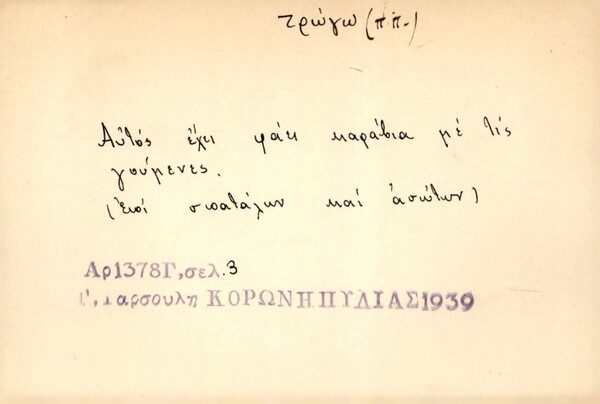 τρώγω (π.π.)
Αὐτός ἔχει φάει καράβια μέ τίς
γούμενες.
(Ἐπί σπατάλων καί ἀσώτων)
Αρ1378Γ,σελ.3
Γ,Ταρσουλη ΚΟΡΩΝΗ ΠΥΛΙΑΣ 1939